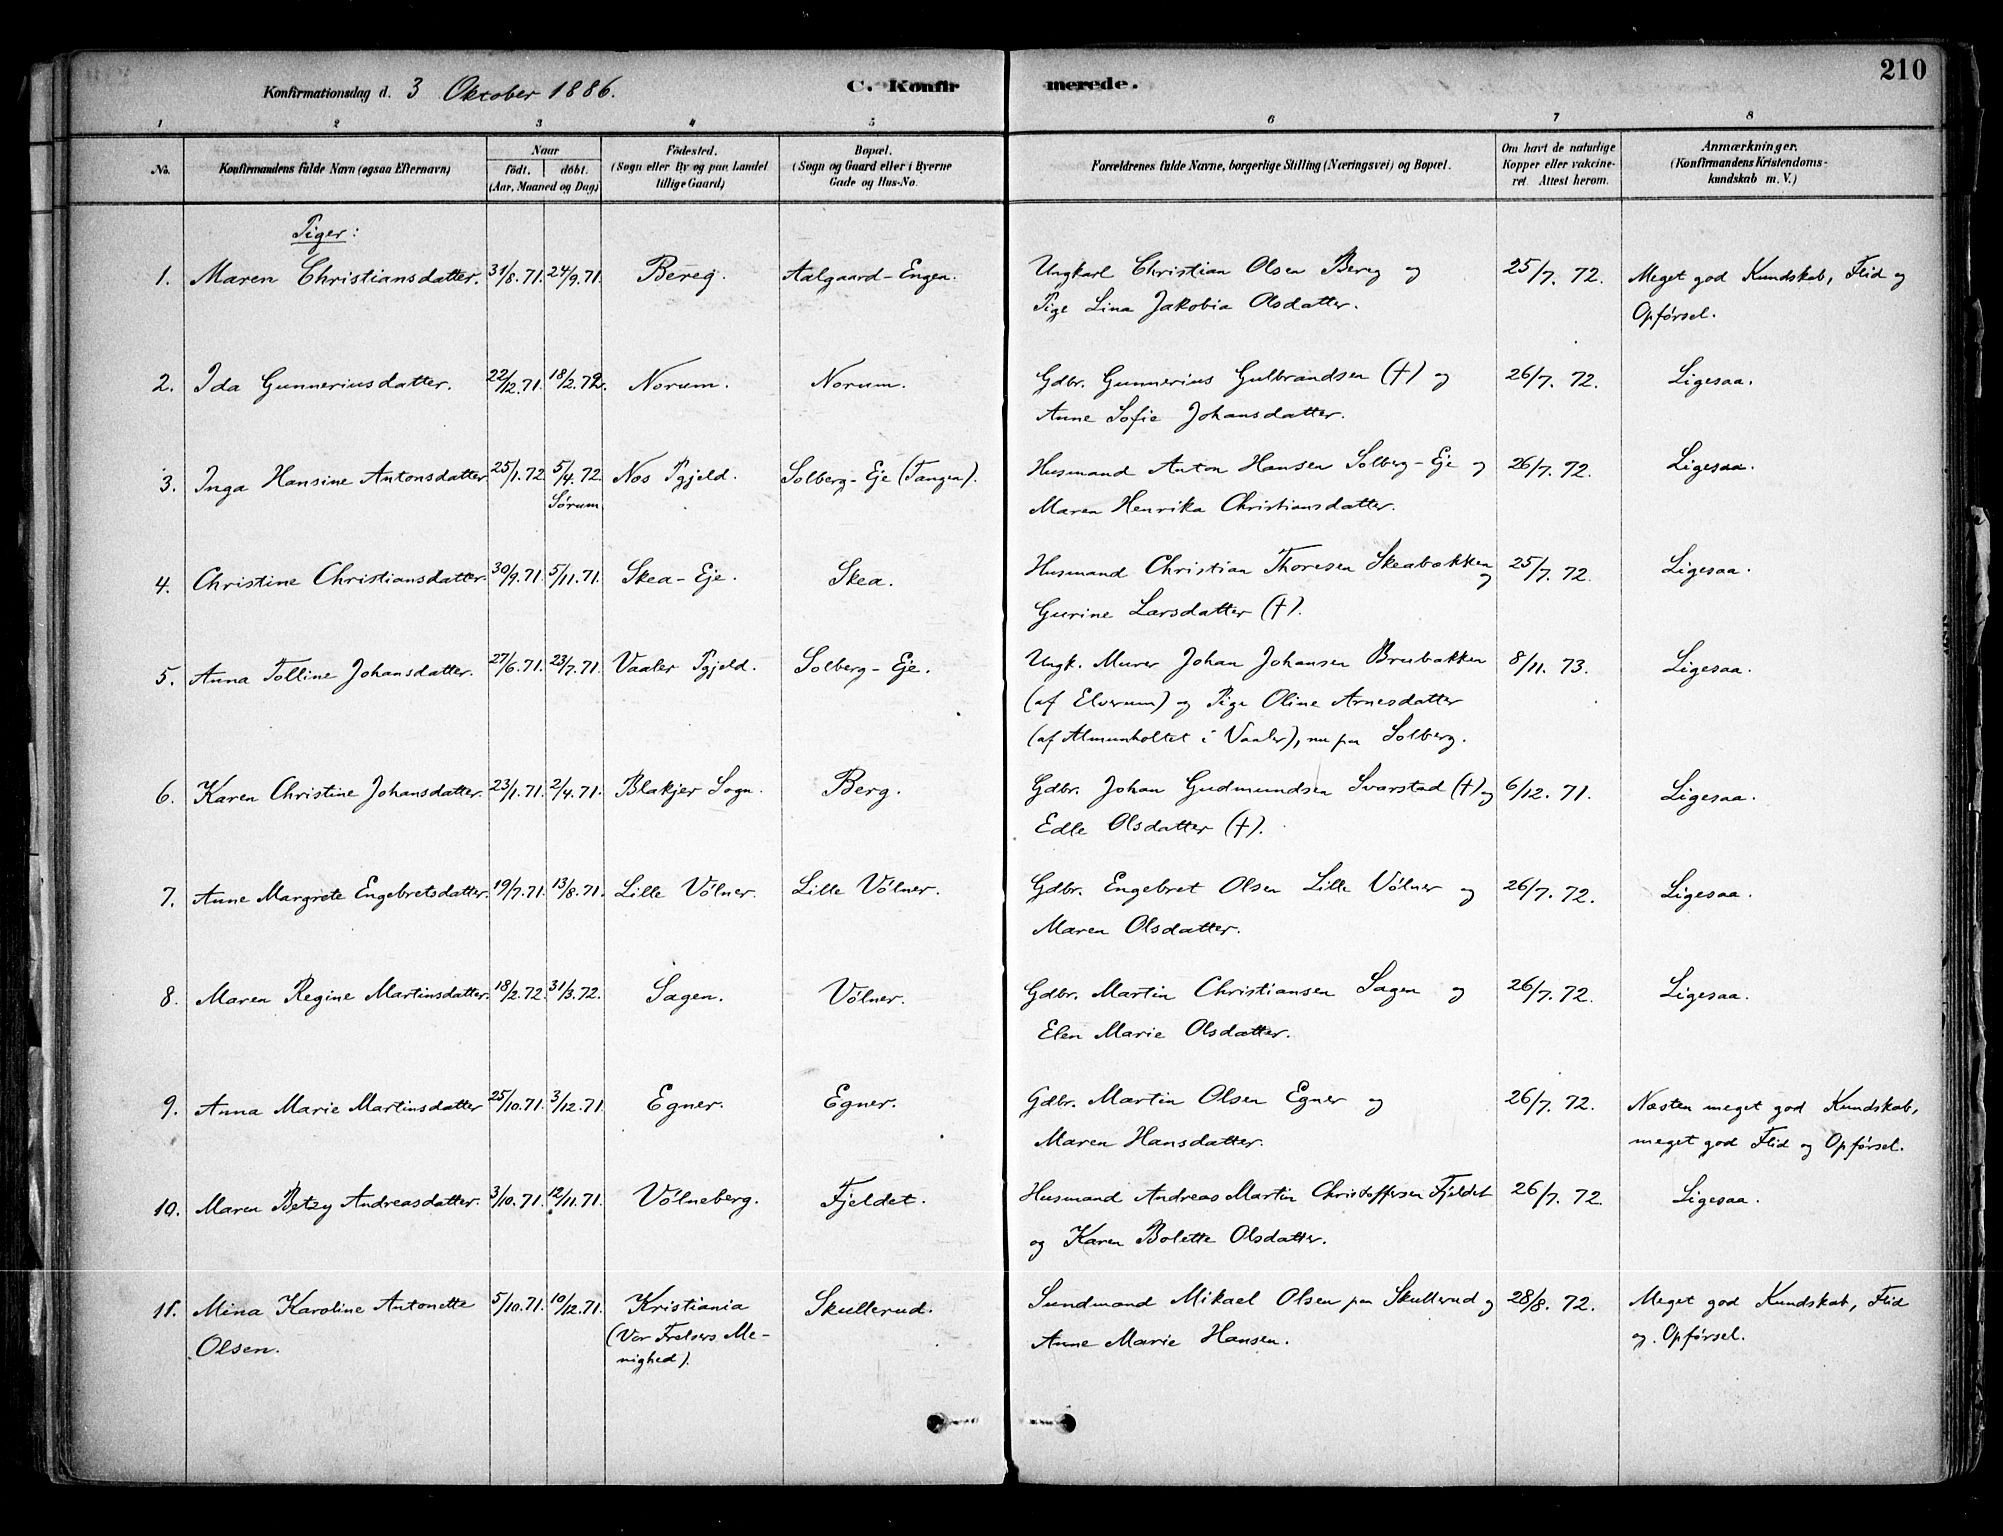 210
Konfirmationsdag d. 3 Oktober 1886. C. Konfirmerede.
1 2 3 4 5 6 7 8
No. Konfirmandens fulde Navn (ogsaa Efternavn) Naar født. døbt. (Aar, Maaned og Dag) Fødested. (Sogn eller By og paa Landet tillige Gaard) Bopæl. (Sogn og Gaard eller i Byerne Gade og Hus-No. Forældrenes fulde Navne, borgerlige Stilling (Næringsvei) og Bopæl. Om havt de naturlige Kopper eller vaccineret. Attest herom. Anmærkninger. (Konfirmandens Kristendomskundskab m. V.)
Piger:
1. Maren Christiansdatter. 31/8. 71. 24/9. 71. Bereg. Aalgaard-Engen. Ungkarl Christian Olsen Bereg og 25/7. 72. Meget god Kundskab, Flid og
Pige Lina Jakobia Olsdatter. Opførsel.
2. Ida Gunneriusdatter. 22/12. 71. 18/2. 72. Norum. Norum. Gdbr. Gunnerius Gulbrandsen (†) og 26/7. 72. Ligesaa.
Anne Sofie Johansdatter.
3. Inga Hansine Antonsdatter 25/1. 72 5/4. 72. Nes Pgjeld. Solberg-Eje (Tangen). Husmand Anton Hansen Solberg-Eje og 26/7. 72. Ligesaa.
Sørum Maren Henrika Christiansdatter.
4. Christine Christiansdatter. 30/9. 71. 5/11. 71. Skea-Eje. Skea. Husmand Christian Thoresen Skeabakken og 25/7. 72. Ligesaa.
Gurine Larsdatter (†).
5. Anna Tolline Johansdatter. 27/6. 71. 23/7. 71. Vaaler Pgjeld. Solberg-Eje. Ungk. Murer Johan Johansen Brubakken 8/11. 73. Ligesaa.
(af Elverum) og Pige Oline Arnesdatter
(af Almenholtet i Vaaler), nu paa Solberg.
6. Karen Christine Johansdatter. 23/1. 71. 2/4. 71. Blakjer Sogn. Berg. Gdbr. Johan Gudmundsen Svarstad (†) og 6/12. 71. Ligesaa.
Edle Olsdatter (†).
7. Anne Margrete Engebretsdatter. 19/7. 71. 13/8. 71. Lille Vølner. Lille Vølner. Gdbr. Engebret Olsen Lille Vølner og 26/7. 72. Ligesaa.
Maren Olsdatter.
8. Maren Regine Martinsdatter. 18/2. 72. 31/3. 72. Sagen. Vølner. Gdbr. Martin Christiansen Sagen og 26/7. 72. Ligesaa.
Elen Marie Olsdatter.
9. Anna Marie Martinsdatter 25/10. 71. 3/12. 71. Egner. Egner. Gdbr. Martin Olsen Egner og 26/7. 72. Næsten meget god Kundskab,
Maren Hansdatter. meget god Flid og Opførsel.
10. Maren Betzy Andreasdatter. 3/10. 71. 12/11. 71. Vølneberg. Fjeldet. Husmand Andreas Martin Christoffersen Fjeldet 26/7. 72. Ligesaa.
og Karen Bolette Olsdatter.
11. Mina Karoline Antonette 5/10. 71. 10/12. 71. Kristiania Skullerud. Sundmand Mikael Olsen paa Skullerud og 28/8. 72. Meget god Kundskab, Flid
Olsen. (Vor Frelsers Me- Anne Marie Hansen. og Opførsel.
nighed).